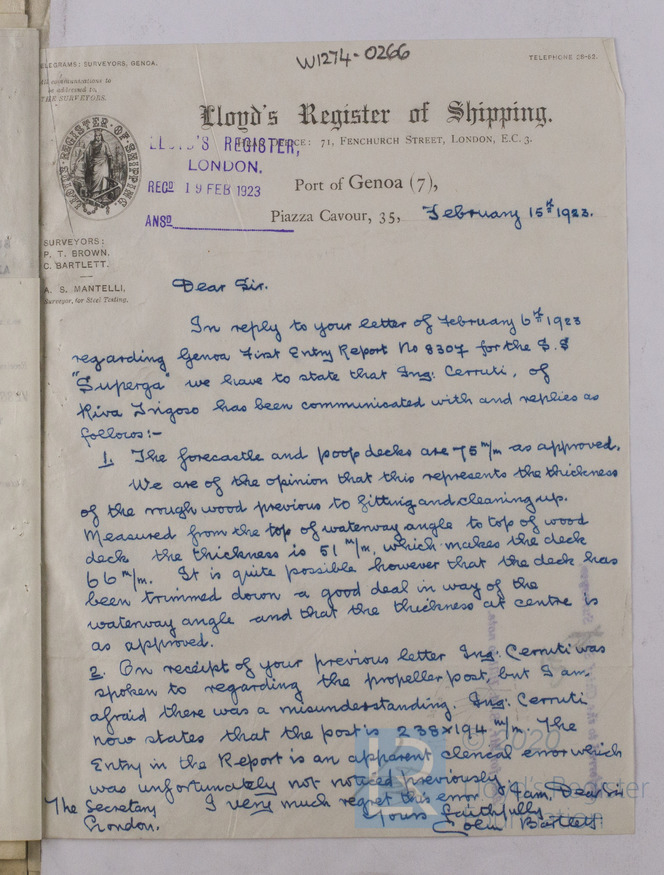 W1274-0266
TELEGRAMS: SURVEYORS, GENOA.
TELEPHONE 28-82.
All communications to
be addressed to
THE SURVEYORS.
Lloyd's Register of Shipping.
LLOYD'S REGISTER OF SHIPPING
HEAD OFFICE: 71, FENCHURCH STREET, LONDON, E.C. 3.
LLOYD'S REGISTER,
LONDON.
RECD 19 FEB 1923
ANSD
Port of Genoa (7),
Piazza Cavour, 35, February 15th 1923.
SURVEYORS:
P. T. BROWN.
C. BARTLETT.
A. S. MANTELLI,
Surveyor, for Steel Testing.
Dear Sir.
In reply to your letter of February 6th 1923
regarding Genoa First Entry Report No 8307 for the S.S
"Superga" we have to state that Ing: Cerruti, of
Riva Trigoso has been communicated with and replies as
follows:-
1. The forecastle and poop decks are 75 m/m as approved.
We are of the opinion that this represents the thickness
of the rough wood previous to fitting and cleaning up.
Measured from the top of waterway angle to top of wood
deck the thickness is 51 m/m, which makes the deck
66 m/m. It is quite possible however that the deck has
been trimmed down a good deal in way of the
waterway angle and that the thickness at centre is
as approved.
2. On receipt of your previous letter Ing: Cerruti was
spoken to regarding the propeller post, but I am
afraid there was a misunderstanding. Ing: Cerruti
now states that the post is 238x194 m/m. The
Entry in the Report is an apparent clerical error which
was unfortunately not noticed previously
I very much regret this error & I am, Dear Sir
The Secretary
London.
Yours faithfully
Colin Bartlett.
© 2020
Lloyd's Register
Foundation